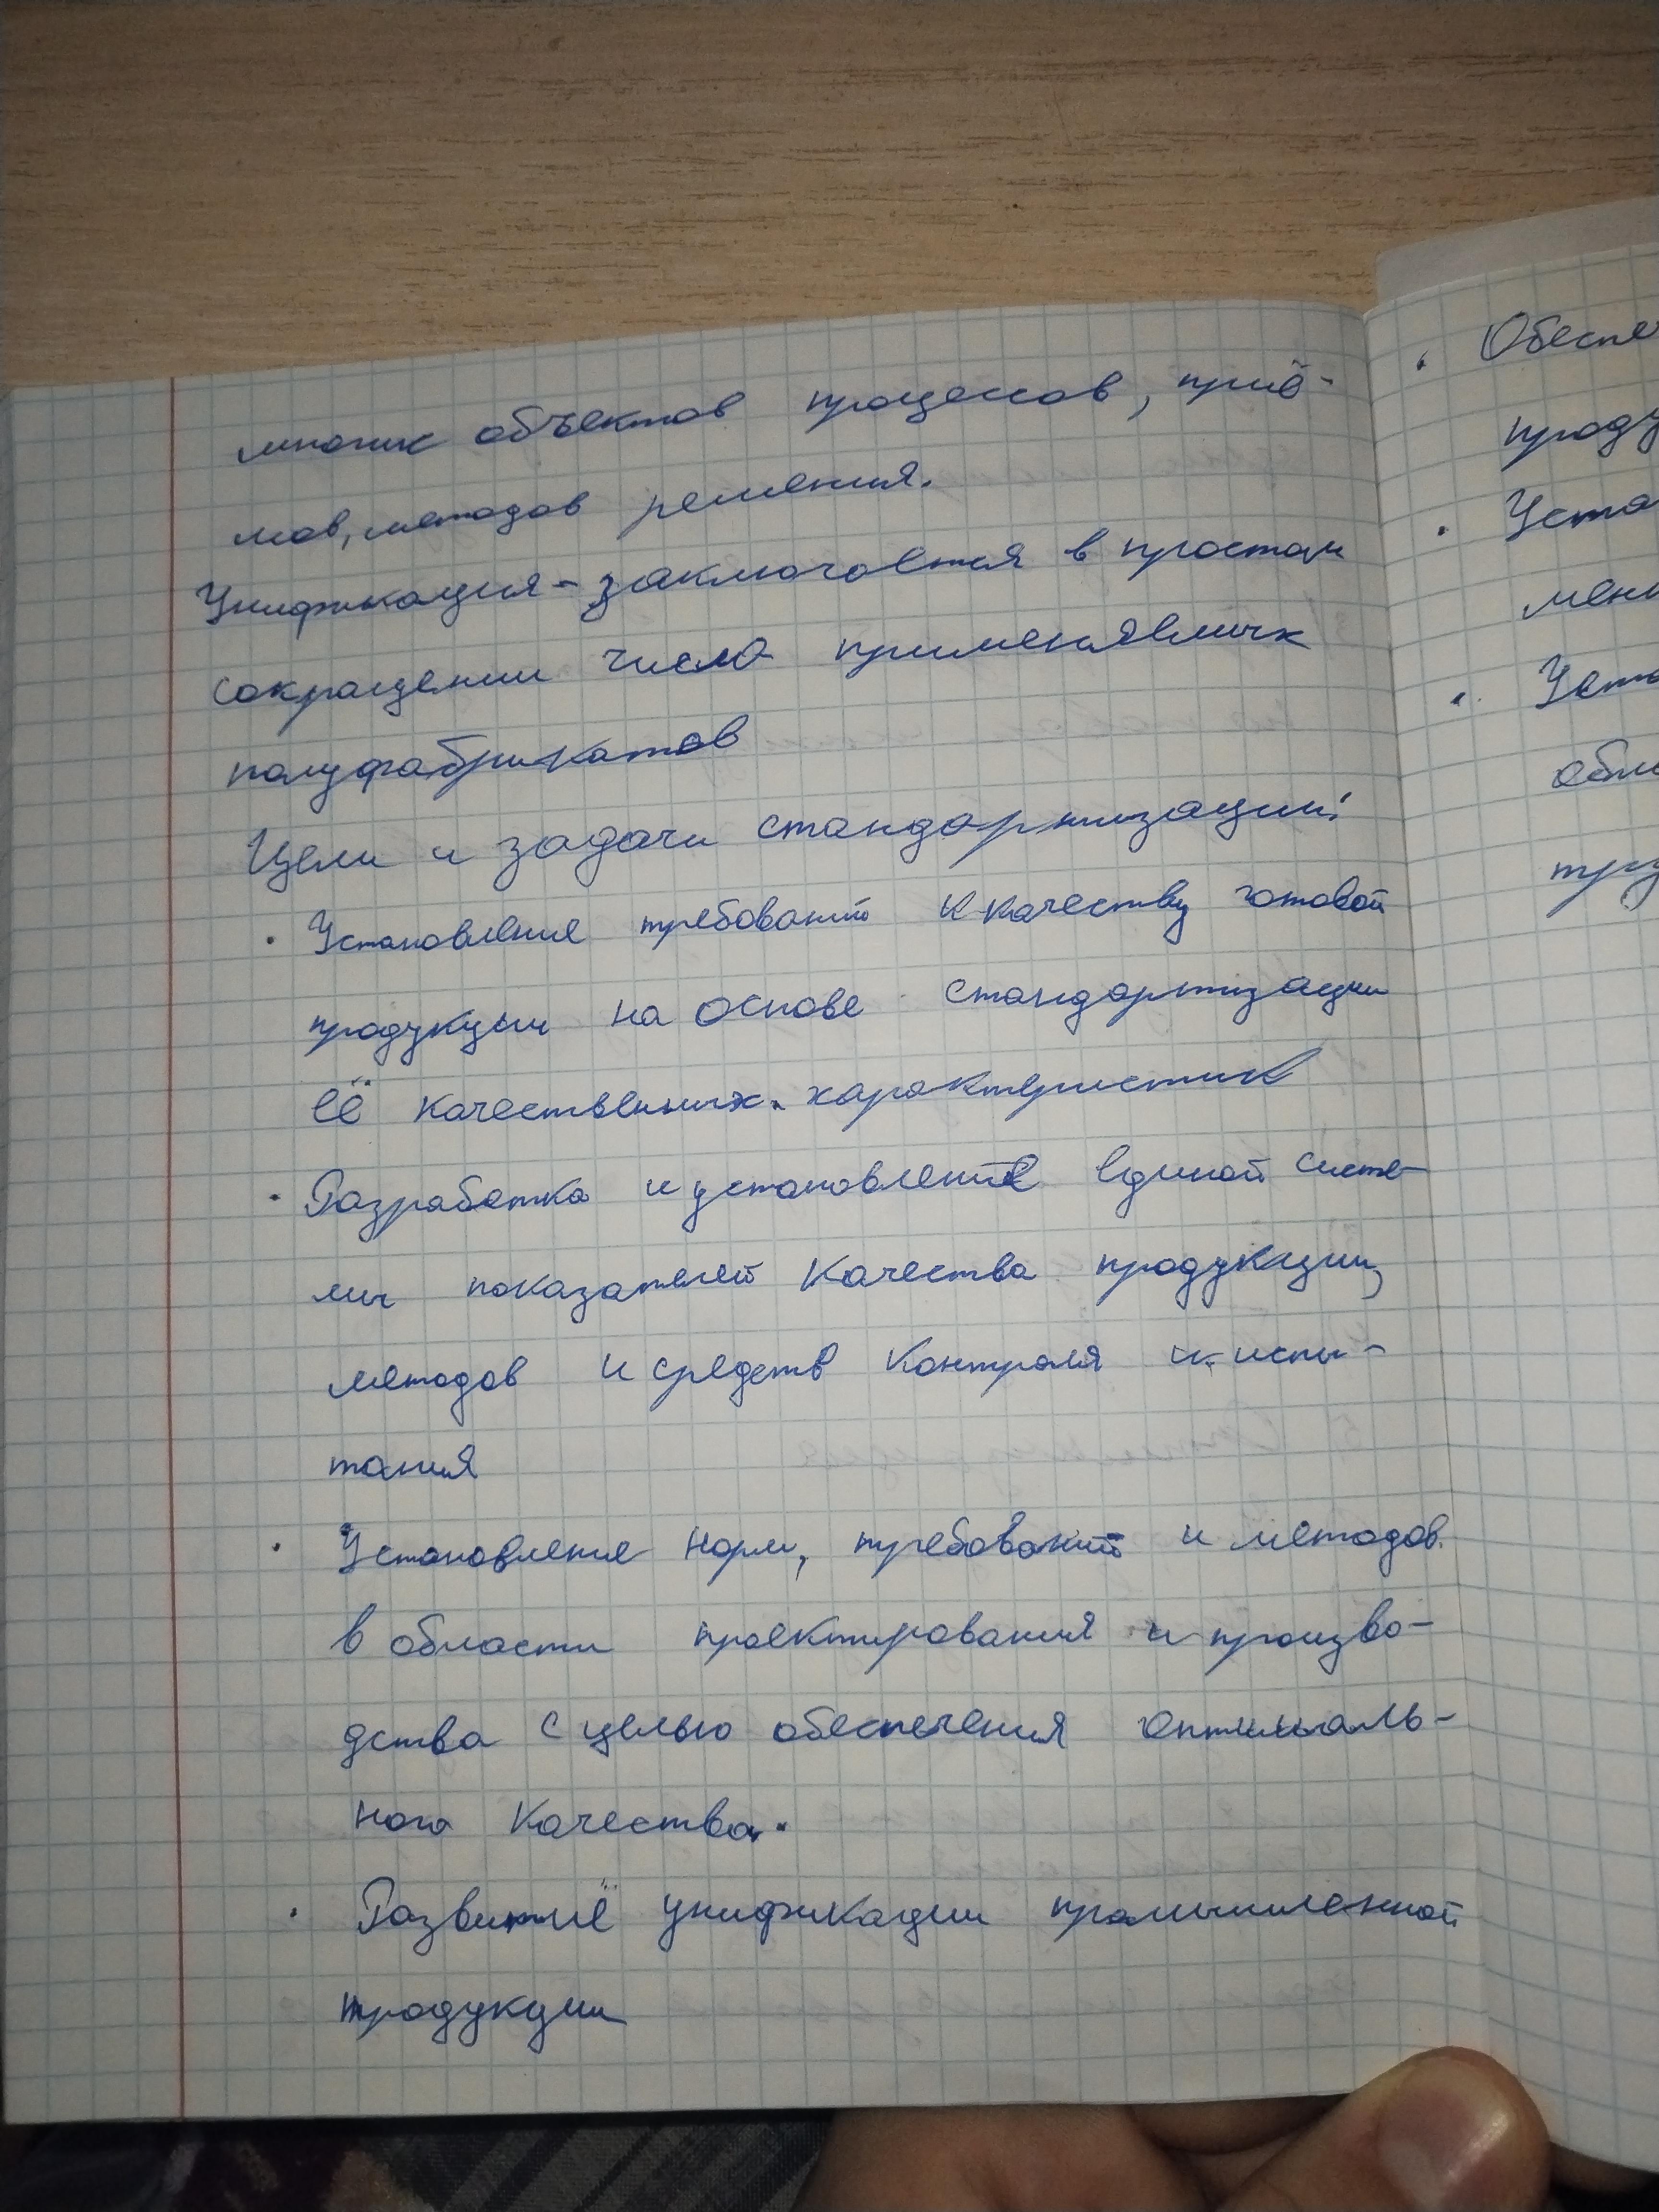 многих объектов процессов, приё-
мов, методов решения.
Унификация - заключается в простом
сокращении числа применяемых
полуфабрикатов
Цели и задачи стандартизации:
· Установление требований к качеству готовой
продукции на основе стандартизации
её качественных характеристик
· Разработка и установление единой систе-
мы показателей качества продукции,
методов и средств контроля и испы-
тания
· Установление норм, требований и методов
в области проектирования и произво-
дства с целью обеспечения оптималь-
ного качества.
· Развитиё унификации промышленной
продукции
· Обеспе
проду
· Уста
мен
· Уста